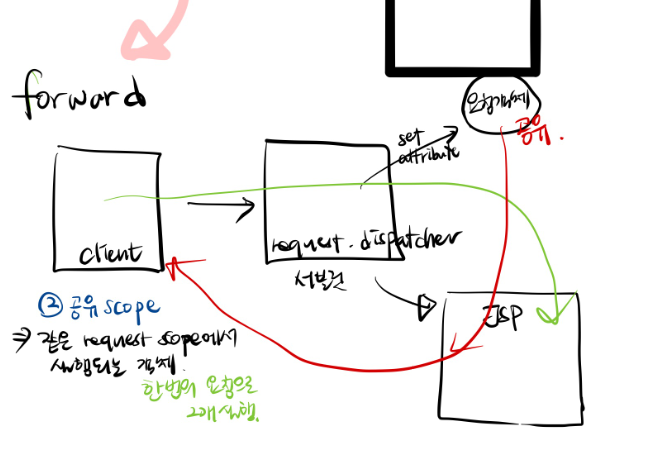 forward
요청객체
공유.
set
attribute
client
request.dispatcher
서블릿
JSP
② 공유 scope
⇒ 같은 request scope에서
실행되는 객체.
한번의 요청으로
2개 실행.